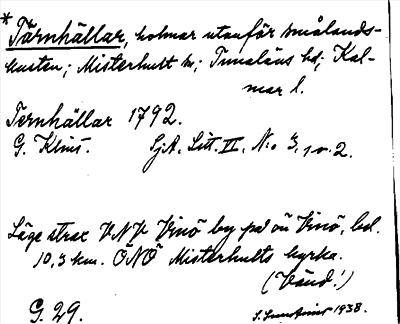 * Tärnhällar, holmar utanför smålands-
kusten; Misterhult sn; Tunaläns hd; Kal-
mar l.
Ternhällar 1792.
G. Klint. Sjk. Litt. II. N:o 3, 1 o. 2.
Läge strax V.N.V. Vinö by på ön Vinö, bel.
10,3 km. ÖNÖ Misterhults kyrka.
(Vänd!)
G. 29. 1938.